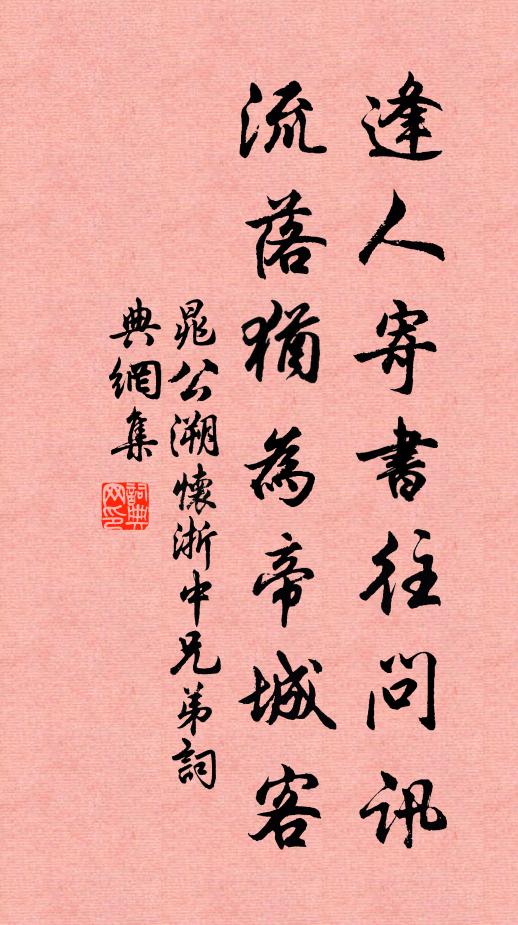 逢人寄書往問訊
流落猶為帝城客
晁公溯懷浙中兄弟詞
典網集
詞典
网印